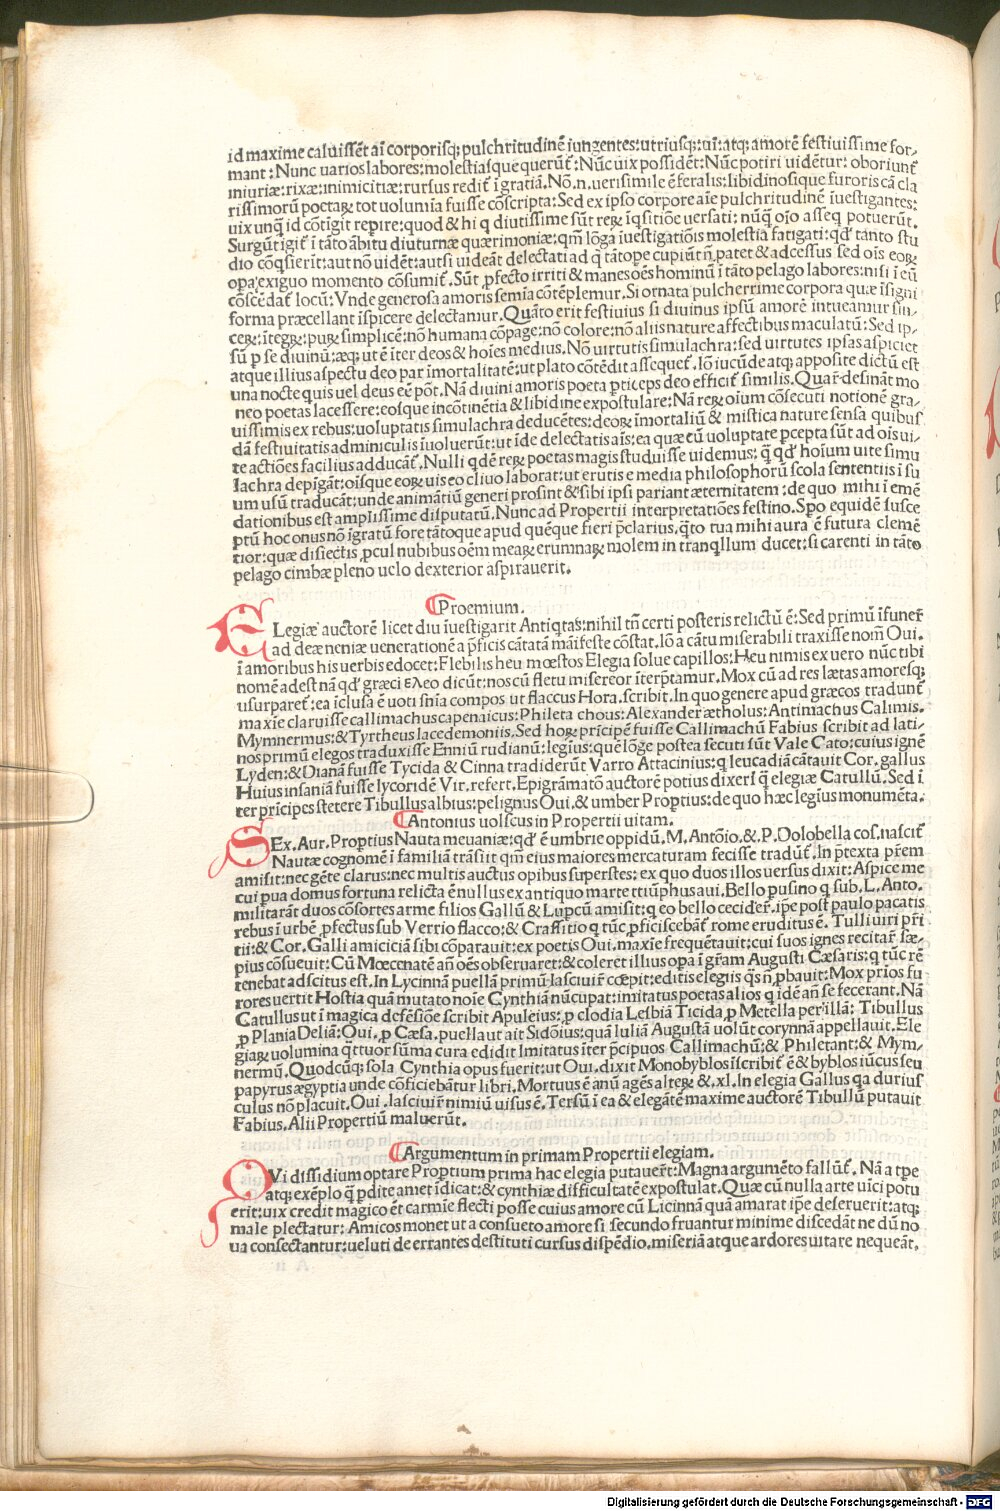 id maxime caluissēt aī corporisq; pulchritudinē iungentes: utriusq;: uī: atq; amorē festiuissime for-
mant: Nunc uarios labores: molestiasque querūt: Nūc uix possidēt: Nūc potiri uidētur: oboriunt
iniuriæ: rixæ: inimicitiæ: rursus redit ī gratiā. Nō. n. uerisimile ē feralis: libidinosique furoris cā cla
rissimorū poetaꝝ tot uolumīa fuisse cōscripta: Sed ex ipso corpore aīe pulchritudinē īuestigantes:
uix unq̄ id cōtigit repīre: quod & hi q diutissime sūt reꝝ īqsitiōe uersati: nūq̄ oīo asseq potuerūt.
Surgūt igit ī tāto ābitu diuturnæ quærimoniæ: qm̄ lōga īuestigatiōis molestia fatigati: qd' tanto stu
dio cōqsierīt: aut nō uidēt: aut si uideāt delectati ad q̄ tātope cupiūt n̄ patet & adcessus sed oīs eoꝝ
opa exiguo momento cōsumit. Sūt ꝓfecto irriti & manes oēs hominū ī tāto pelago labores: nisi ī eū
cōscēdāt locū: Vnde generosa amoris semīa cōtēplemur. Si ornata pulcherrime corpora quæ īsigni
forma præcellant īspicere delectamur. Quāto erit festiuius si diuinus ipsū amorē intueamur sin-
ceꝝ: itegꝝ: puꝝ simplicē: nō humana cōpage: nō colore: nō aliis nature affectibus maculatū: Sed ip-
sū p se diuinū: æq; ut ē īter deos & hoīes medius. Nō uirtutis simulachra: sed uirtutes ipsas aspiciet
atque illius aspectu deo par īmortalitatē: ut plato cōtēdit assequet. Iō iucūde atq; apposite dictū est
una nocte quis uel deus eē pōt. Nā diuini amoris poeta pticeps deo efficit similis. Quar̄ desināt mo
neo poetas lacessere: eosque incōtinētia & libidine expostulare: Nā reꝝ oium cōsecuti notionē gra-
uissimis ex rebus: uoluptatis simulachra deducētes: deoꝝ īmortaliū & mistica nature sensa quibus
dā festiuitatis adminiculis īuoluerūt: ut īde delectatis aīs: ea quæ cū uoluptate pcepta sūt ad oīs ui-
te actiōes facilius adducāt. Nulli qdē reꝝ poetas magis studuisse uidemus: q̄ qd' hoīum uite simu
lachra depīgāt: oīsque eoꝝ uis eo cliuo laborat: ut erutis e media philosophorū scola sententiis ī su
um usū traducāt: unde animātiū generi prosint & sibi ipsi pariant æternitatem: de quo mihi ī emē
dationibus est amplissime disputatū. Nunc ad Propertii interpretatiōes festino. Spo equidē susce
ptū hoc onus nō īgratū fore tātoque apud quēque fieri pclarius, q̄to tua mihi aura ē futura clemē
tior: quæ disiectis ꝓcul nubibus oēm meaꝝ erumnaꝝ molem in tranqllum ducet: si carenti in tāto
pelago cimbæ pleno uelo dexterior aspirauerit.
Proemium.
ELegiæ auctorē licet diu īuestigarit Antiqtas: nihil tn̄ certi posteris relictū ē: Sed primū īfuner̄
ad deæ neniæ uenerationē a pficis cātatā māifeste cōstat. Iō a cātu miserabili traxisse nom̄ Oui.
ī amoribus his uerbis edocet: Flebilis heu mœstos Elegia solue capillos: Heu nimis ex uero nūc tibi
nomē adest nā qd' græci ελεο dicūt: nos cū fletu misereor īterptamur. Mox cū ad res lætas amoresq;
usurparet: ea īclusa ē uoti snīa compos ut flaccus Hora. scribit. In quo genere apud græcos tradunt
maxīe claruisse callimachus capenaicus: Phileta chous: Alexander ætholus: Antimachus Calimis.
Mymnermus: & Tyrtheus lacedemoniis. Sed hoꝝ prīcipē fuisse Callimachū Fabius scribit ad lati-
nos primū elegos traduxisse Enniū rudianū: legius: quē lōge postea secuti sūt Vale Cato: cuius ignē
Lyden: & Dianā fuisse Tycida & Cinna tradiderūt Varro Attacinius: q leucadiā cātauit Cor. gallus
Huius insaniā fuisse lycoridē Vir. refert. Epigrāmatō auctorē potius dixerī q̄ elegiæ Catullū. Sed ī
ter prīcipes stetere Tibullus albius: pelignus Oui. & umber Proptius: de quo hæc legius monumēta.
Antonius uolscus in Propertii uitam.
SEx. Aur. Proptius Nauta meuaniæ: qd' ē umbrie oppidū. M. Antōio. &. P. Dolobella cos. nascit
Nautæ cognomē ī familiā trāsiit qm̄ eius maiores mercaturam fecisse tradūt. In ptexta pr̄em
amisit: nec gēte clarus: nec multis auctus opibus superstes: ex quo duos illos uersus dixit: Aspice me
cui pua domus fortuna relicta ē nullus ex antiquo marte triūphus aui. Bello pusino q sub. L. Anto.
militarāt duos cōsortes arme filios Gallū & Lupcū amisit: q eo bello cecider̄. ipe post paulo pacatis
rebus ī urbē pfectus sub Verrio flacco: & Craffitio q tūc pficiscebāt rome eruditus ē. Tulli uiri pr̄i
tii: & Cor. Galli amiciciā sibi cōparauit: ex poetis Oui. maxīe frequētauit: cui suos ignes recitar̄ sæ-
pius cōsueuit: Cū Mœcenatē an̄ oēs obseruaret: & coleret illius opa ī gr̄am Augusti Cæsaris: q tūc rē
tenebat adscitus est. In Lycinnā puellā primū lasciuir̄ cœpit: editis elegiis qs n̄ pbauit: Mox prios fu
rores uertit Hostia quā mutato noīe Cynthiā nūcupat: imitatus poetas alios q idē an̄ se fecerant. Nā
Catullus ut ī magica defēsiōe scribit Apuleius: p clodia Lesbiā Ticida p Metella perillā: Tibullus
p Plania Deliā: Oui. p Cæsa. puella ut ait Sidōius: quā Iuliā Augustā uolūt corynnā appellauit. Ele
giaꝝ uolumina q̄ttuor sūma cura edidit Imitatus īter pcipuos Callimachū: & Philetant: & Mym-
nermū. Quodcūq; sola Cynthia opus fuerit: ut Oui. dixit Monobyblos īscribit ē & byblos iūcus seu
papyrus ægyptia unde cōficiebātur libri. Mortuus ē anū agēs alteꝝ &. xl. In elegia Gallus qa durius
culus nō placuit. Oui. lasciuir̄ nimiū uisus ē. Tersū ī ea & elegātē maxime auctorē Tibullū putauit
Fabius. Alii Propertiū maluerūt.
Argumentum in primam Propertii elegiam.
QVi dissidium optare Proptium prima hac elegia putauer̄t: Magna argumēto fallūt. Nā a tpe
atq; exēplo q̄ pdite amet īdicat: & cynthiæ difficultatē expostulat. Quæ cū nulla arte uīci potu
erit: uix credit magico ēt carmīe flecti posse cuius amore cū Licinnā quā amarat ipe deseruerit: atq;
male plectatur: Amicos monet ut a consueto amore si secundo fruantur minime discedāt ne dū no
ua consectantur: ueluti de errantes destituti cursus dispēdio. miseriā atque ardores uitare nequeāt.
Digitalisierung gefördert durch die Deutsche Forschungsgemeinschaft - DFG